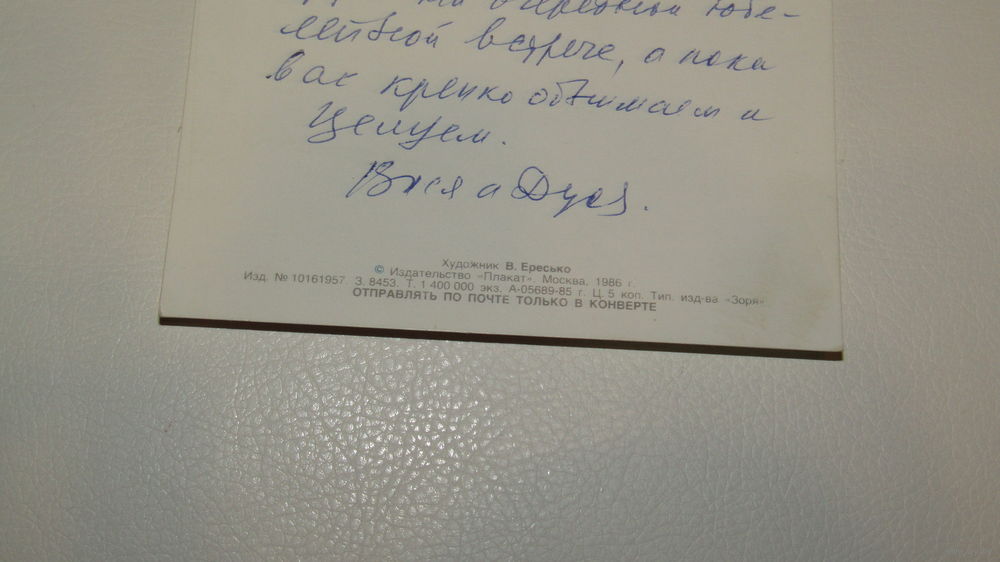 очередной юби-
лейной встрече, а пока
вас крепко обнимаем и
Целуем.
Вася и Дуся.
Художник В. Ересько
© Издательство «Плакат». Москва, 1986 г.
Изд. № 10161957. З. 8453. Т. 1 400 000 экз. А-05689-85 г. Ц. 5 коп. Тип. изд-ва «Зоря»
ОТПРАВЛЯТЬ ПО ПОЧТЕ ТОЛЬКО В КОНВЕРТЕ